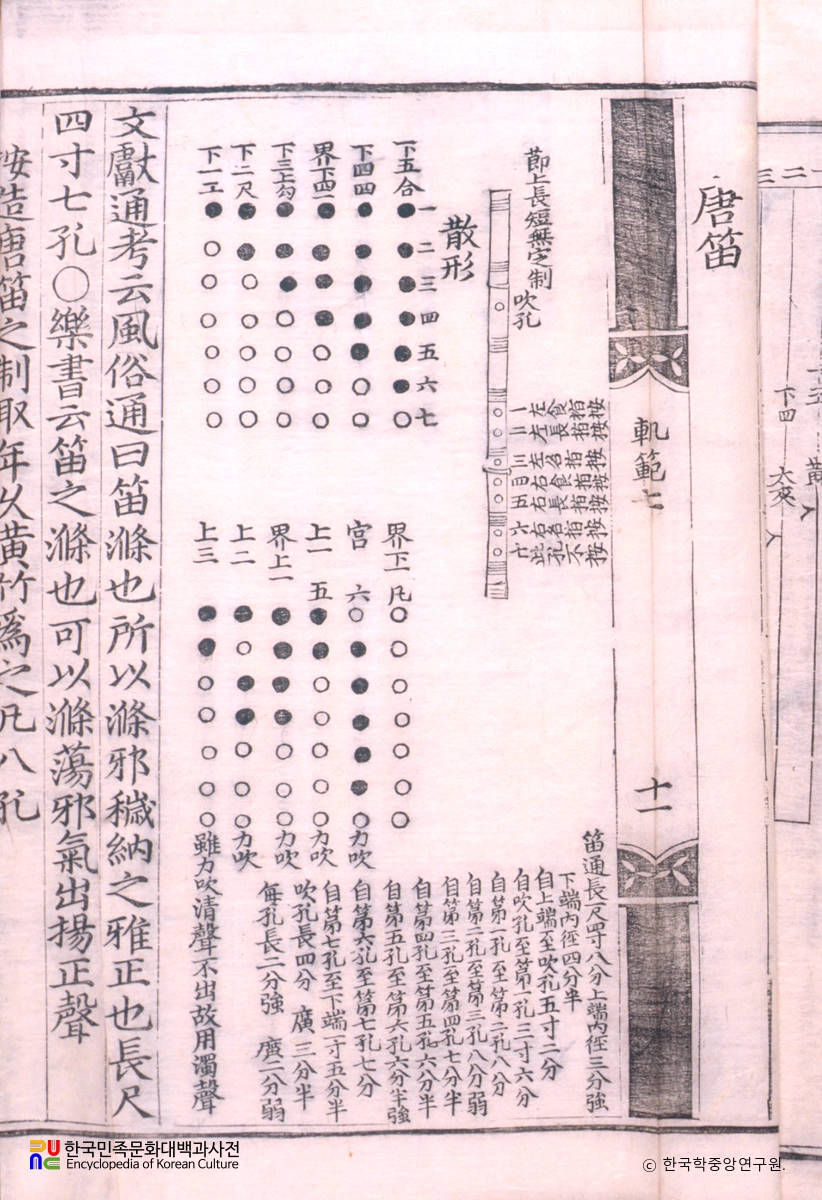 唐笛
軌範七
十一
節上長短無定制
吹孔
一左食指按
二左長指按
三左名指按
四右食指按
五右長指按
六右名指按
七此孔不按
笛通長尺四寸八分上端內徑三分強
下端內徑四分半
自上端至吹孔五寸二分
自吹孔至第一孔三寸六分
自第一孔至第二孔八分
自第二孔至第三孔八分弱
自第三孔至第四孔七分半
自第四孔至第五孔六分半
自第五孔至第六孔六分半強
自第六孔至第七孔七分
自第七孔至下端二寸五分半
吹孔長四分 廣三分半
每孔長二分強 廣二分弱
散形
一二三四五六七
下五合
下四四
界下四一
下三上勾
下二尺
下一工
界下凡
宮六 力吹
上一五 力吹
界上一 力吹
上二 力吹
上三 雖力吹清聲不出故用濁聲
文獻通考云風俗通曰笛滌也所以滌邪穢納之雅正也長尺
四寸七孔○樂書云笛之滌也可以滌蕩邪氣出揚正聲
按造唐笛之制取年久黃竹爲之凡八孔
二三
下四
太夾
黃
한국민족문화대백과사전
Encyclopedia of Korean Culture
ⓒ 한국학중앙연구원.